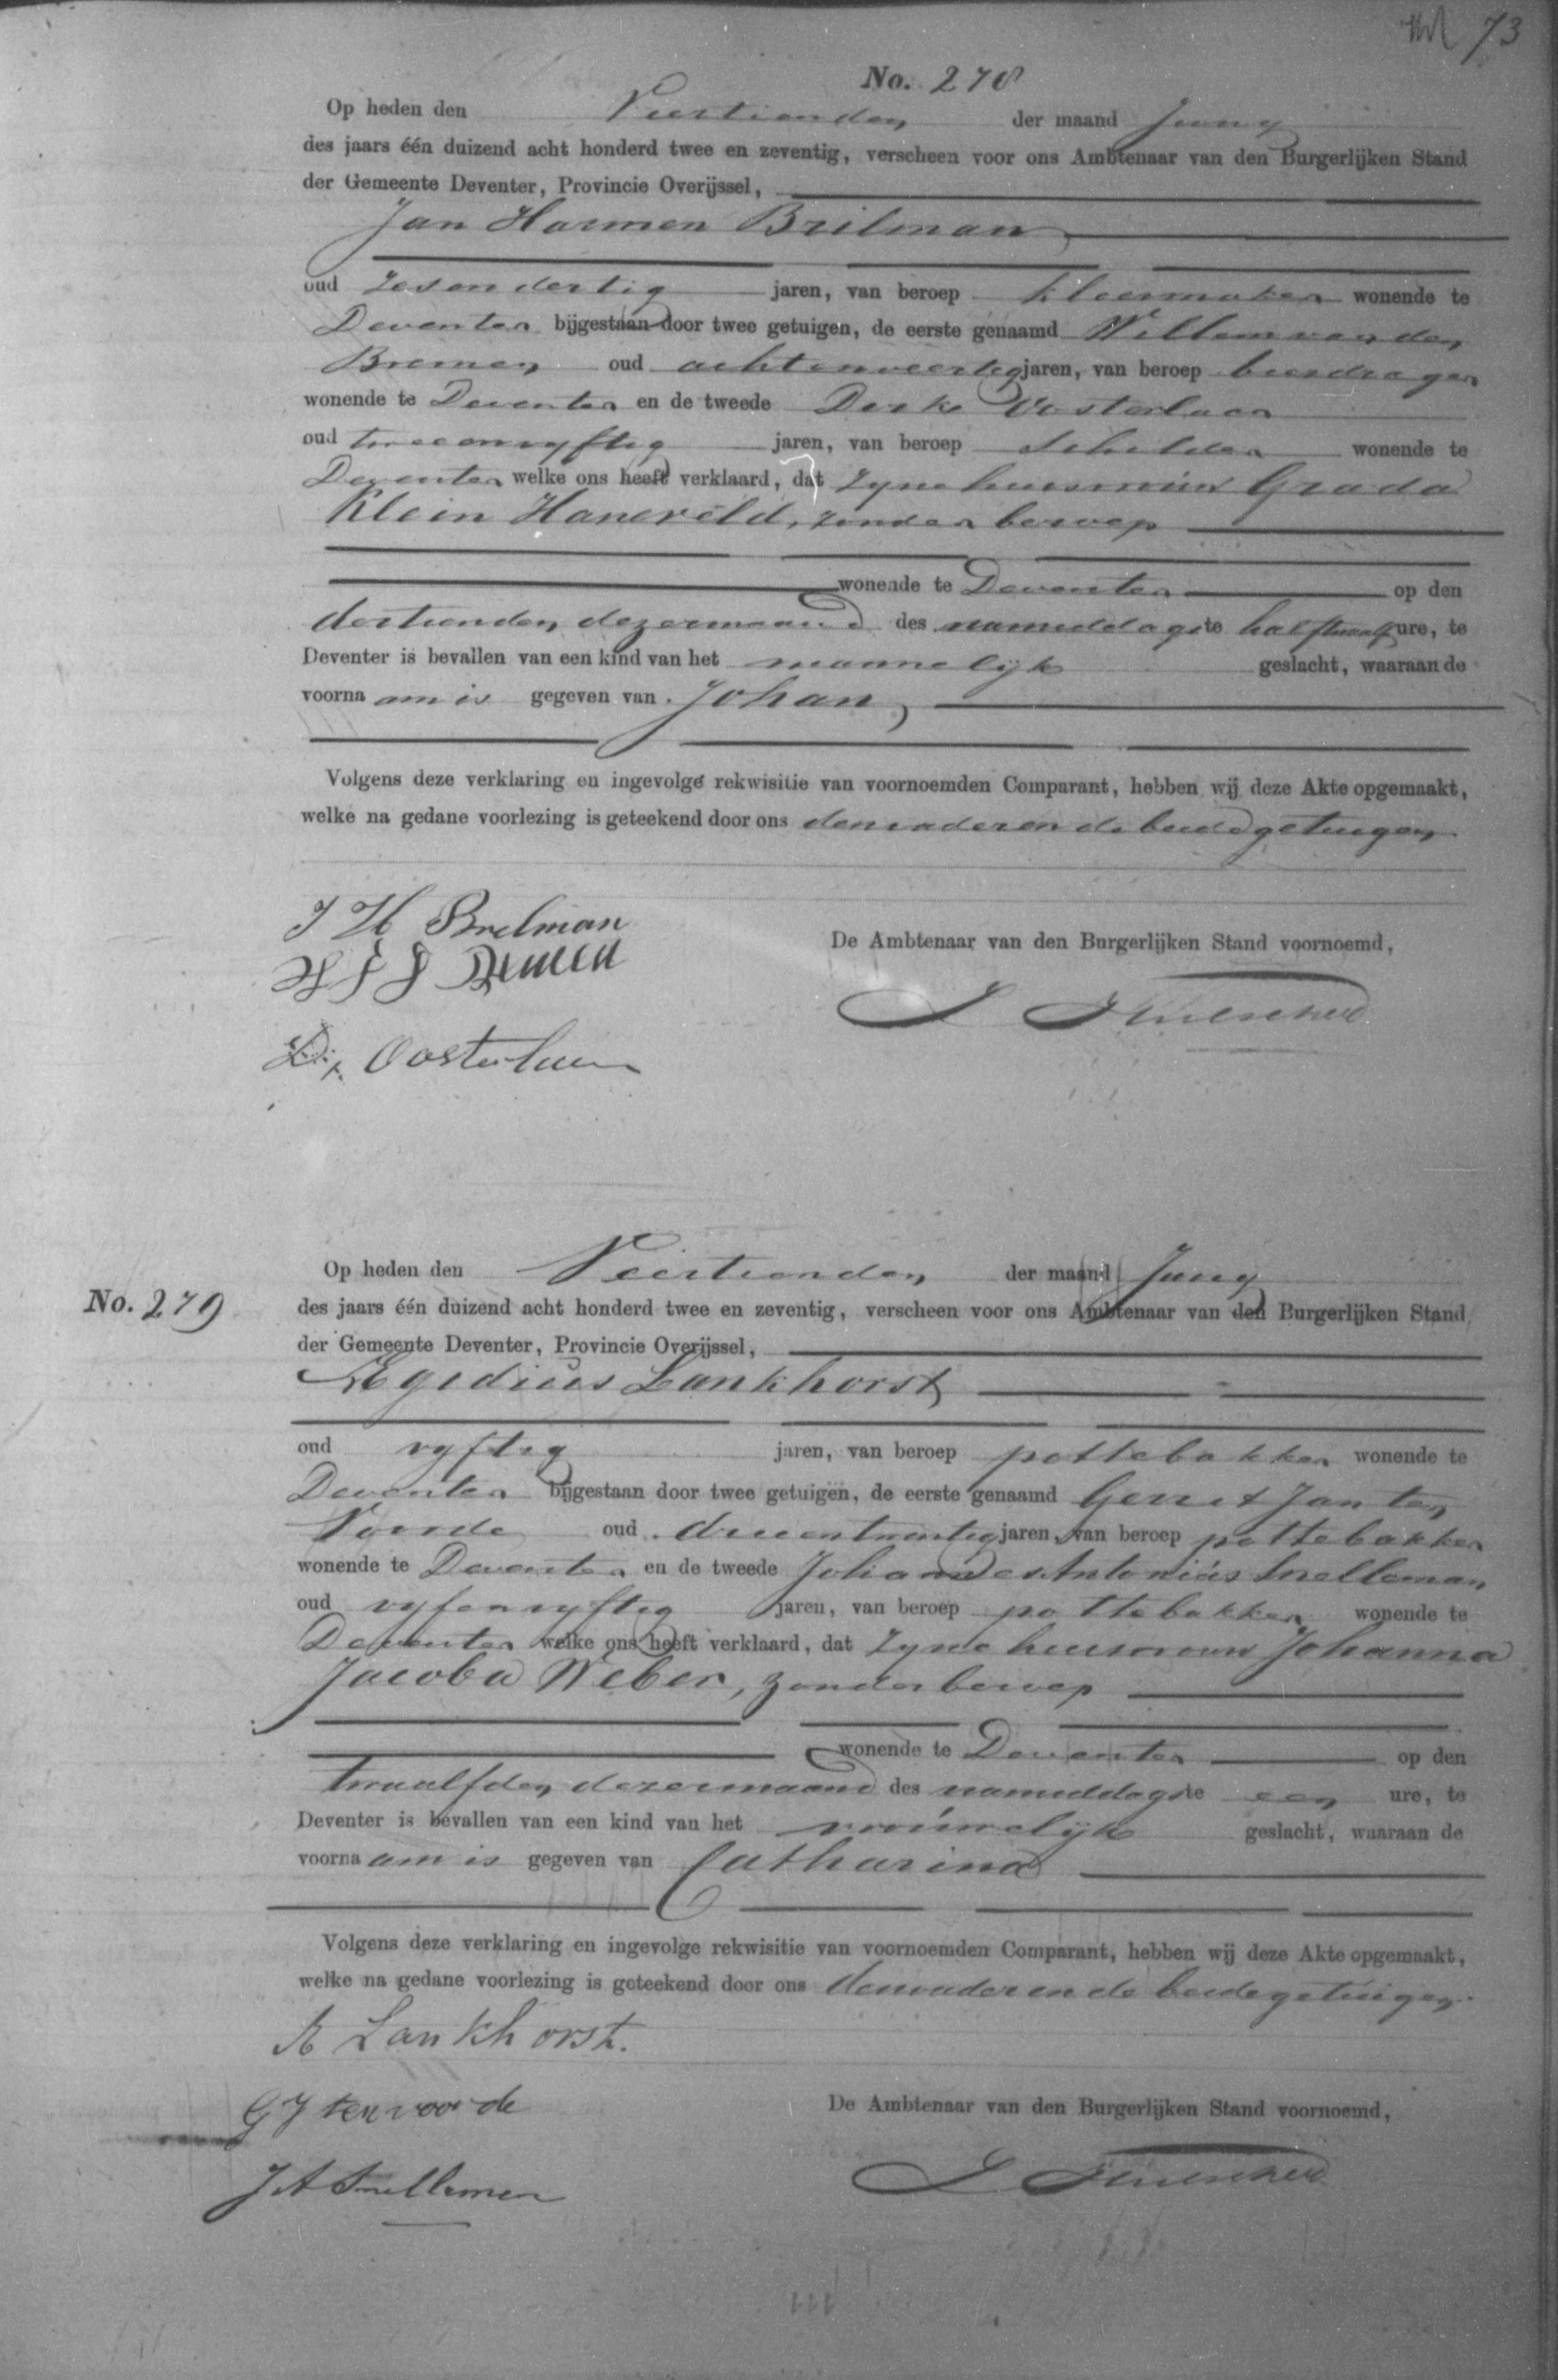 73
No. 278
Op heden den Veertienden der maand Juny
des jaars één duizend acht honderd twee en zeventig, verscheen voor ons Ambtenaar van den Burgerlijken Stand
der Gemeente Deventer, Provincie Overijssel,
Jan Harmen Brilman
oud zesendertig jaren, van beroep kleermaker wonende te
Deventer bijgestaan door twee getuigen, de eerste genaamd Willem van den
Bremen oud achtenveertig jaren, van beroep
wonende te Deventer en de tweede Derk Oosterlaar
oud tweeenvyftig jaren, van beroep Schilder wonende te
Deventer welke ons heeft verklaard, dat zyne huisvrouw Grada
Klein Haneveld, zonder beroep
wonende te Deventer op den
dertienden dezer maand des namiddags te half twaalf ure, te
Deventer is bevallen van een kind van het mannelijk geslacht, waaraan de
voorna am is gegeven van Johan,
Volgens deze verklaring en ingevolge rekwisitie van voornoemden Comparant, hebben wij deze Akte opgemaakt,
welke na gedane voorlezing is geteekend door ons den vader en de beide getuigen
J H Brelman
De Ambtenaar van den Burgerlijken Stand voornoemd,
D. Oosterlaar
Op heden den Veertienden der maand Juny
No. 279
des jaars één duizend acht honderd twee en zeventig, verscheen voor ons Ambtenaar van den Burgerlijken Stand
der Gemeente Deventer, Provincie Overijssel,
Egidius Lankhorst
oud vyftig jaren, van beroep pottebakker wonende te
Deventer bijgestaan door twee getuigen, de eerste genaamd Gerrit Jan ten
Voorde oud drieentwintig jaren, van beroep pottebakker
wonende te Deventer en de tweede Johannes Antonius Snelleman
oud vyfenvyftig jaren, van beroep pottebakker wonende te
Deventer welke ons heeft verklaard, dat zyne huisvrouw Johanna
Jacoba Weber, zonder beroep
wonende te Deventer op den
twaalfden dezer maand des namiddags te een ure, te
Deventer is bevallen van een kind van het vrouwelijk geslacht, waaraan de
voorna am is gegeven van Catharina
Volgens deze verklaring en ingevolge rekwisitie van voornoemden Comparant, hebben wij deze Akte opgemaakt,
welke na gedane voorlezing is geteekend door ons den vader en de beide getuigen.
A Lankhorst.
G J ten voorde
De Ambtenaar van den Burgerlijken Stand voornoemd,
J A Snelleman